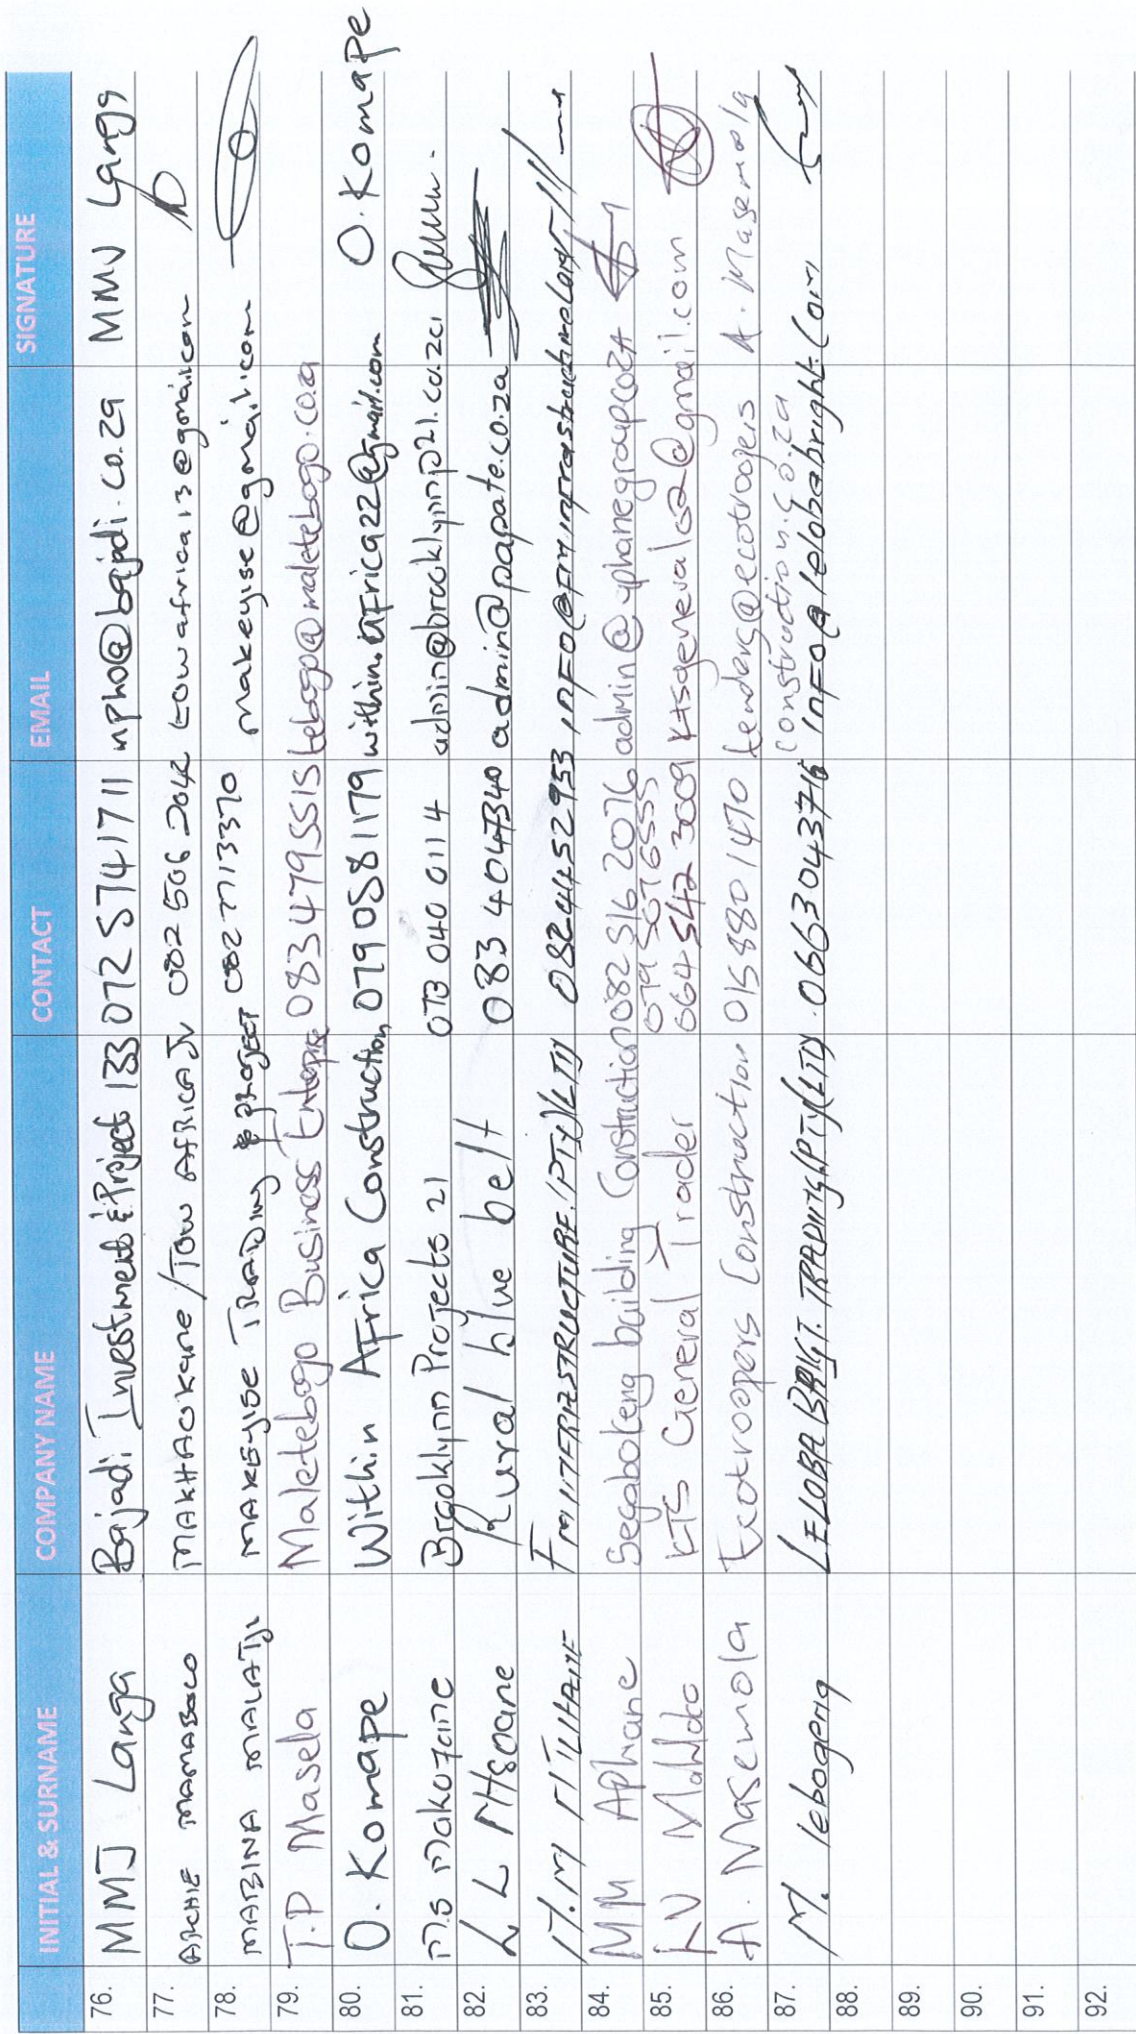 INITIAL & SURNAME COMPANY NAME CONTACT EMAIL SIGNATURE
76. MMJ Langa Bajadi Investment & Project 133 072 5741711 mpho@bajadi.co.za MMJ Langa
77. ARCHIE MAMABOLO MAKHAOKANE/TOW AFRICA JV 082 506 2042 towafrica13@gmail.com
78. MABINA MALATJI MAKEYISE TRADING & PROJECT 082 7713370 makeyise@gmail.com
79. T.P Masela Maletebogo Business Enterprise 083 479 5515 tebogo@maletebogo.co.za
80. O. Komape Within Africa Construction 079 058 1179 within.africa22@gmail.com O. Komape
81. M.S Makofane Brooklynn Projects 21 073 040 0114 admin@brooklynnp21.co.za
82. L L Rural blue belt 083 404 7340 admin@papate.co.za
83. INFRASTRUCTURE (PTY) LTD 082 445 2953
84. MM Aphane Segabokeng building Construction 082 516 2076 admin@aphanegroup.co.za
85. KTS General Trader 079 507 6555
064 542 3009 ktsgeneral02@gmail.com
86. A. Masemola Ecotroopers Construction 015 880 1470 tenders@ecotroopers A. Masemola
construction.co.za
87. M. lebogeng LELOBA BRIGT TRADING (PTY) LTD 0663043716 INFO@lelobabright.com
88.
89.
90.
91.
92.